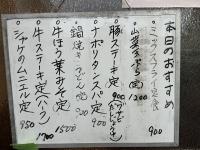 本日のおすすめ
ミックスフライ定食 900
山菜そば定 1200
豚ステーキ定 900
ナポリタンスパ定 900
鍋焼きうどん
牛ほう葉みそ定 1500
牛ステーキ定(ハーフ) 1700
シャケのムニエル定 950